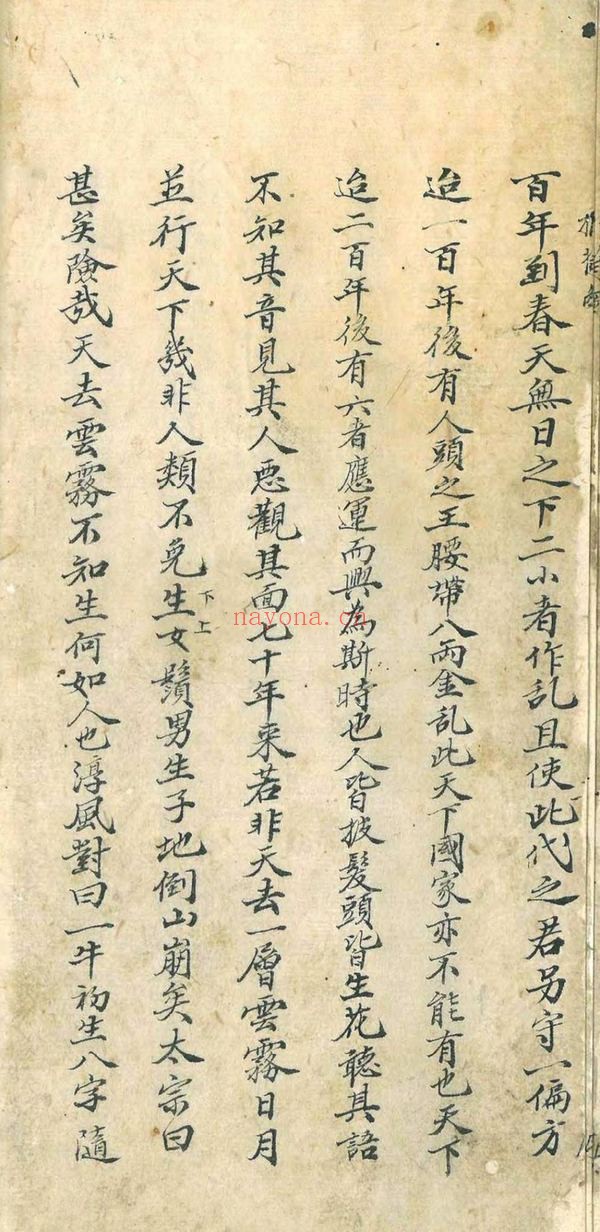 百年到春天無日之下二小者作乱且使此代之君另守一偏方
迨一百年後有人頭之王腰帶八両金乱此天下國家亦不能有也天下
迨二百年後有六者應運而興為斯時也人皆披髮頭皆生花聽其語
不知其音見其人悪觀其面七十年来若非天去一層雲霧日月
並行天下幾非人類不免生女鬚男生子地倒山崩矣太宗曰
下上
甚矣險哉天去雲霧不知生何如人也淳風對曰一牛初生八字隨
nayona.cn